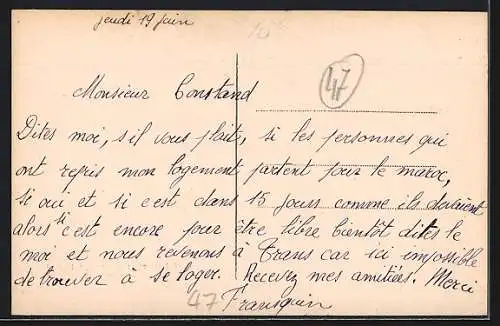 jeudi 19 juin
47
Monsieur Constand
Dites moi, s'il vous plait, si les personnes qui
ont repris mon logement partent pour le maroc,
si oui et si c'est dans 15 jours comme ils devaient
alors si c'est encore pour être libre bientôt dites le
moi et nous revenons à Trans car ici impossible
de trouver à se loger. Recevez mes amitiées. Merci
47 Franquin